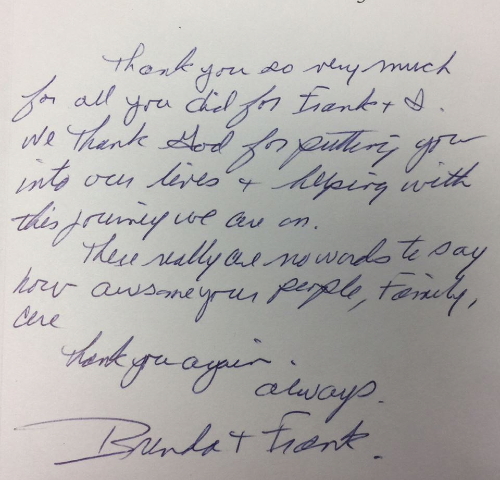 Thank you so very much
for all you did for Frank + I.
We thank God for putting you
into our lives + helping with
this journey we are on.
There really are no words to say
how awsome your people, Family,
are
Thank you again.
always.
Brenda + Frank.